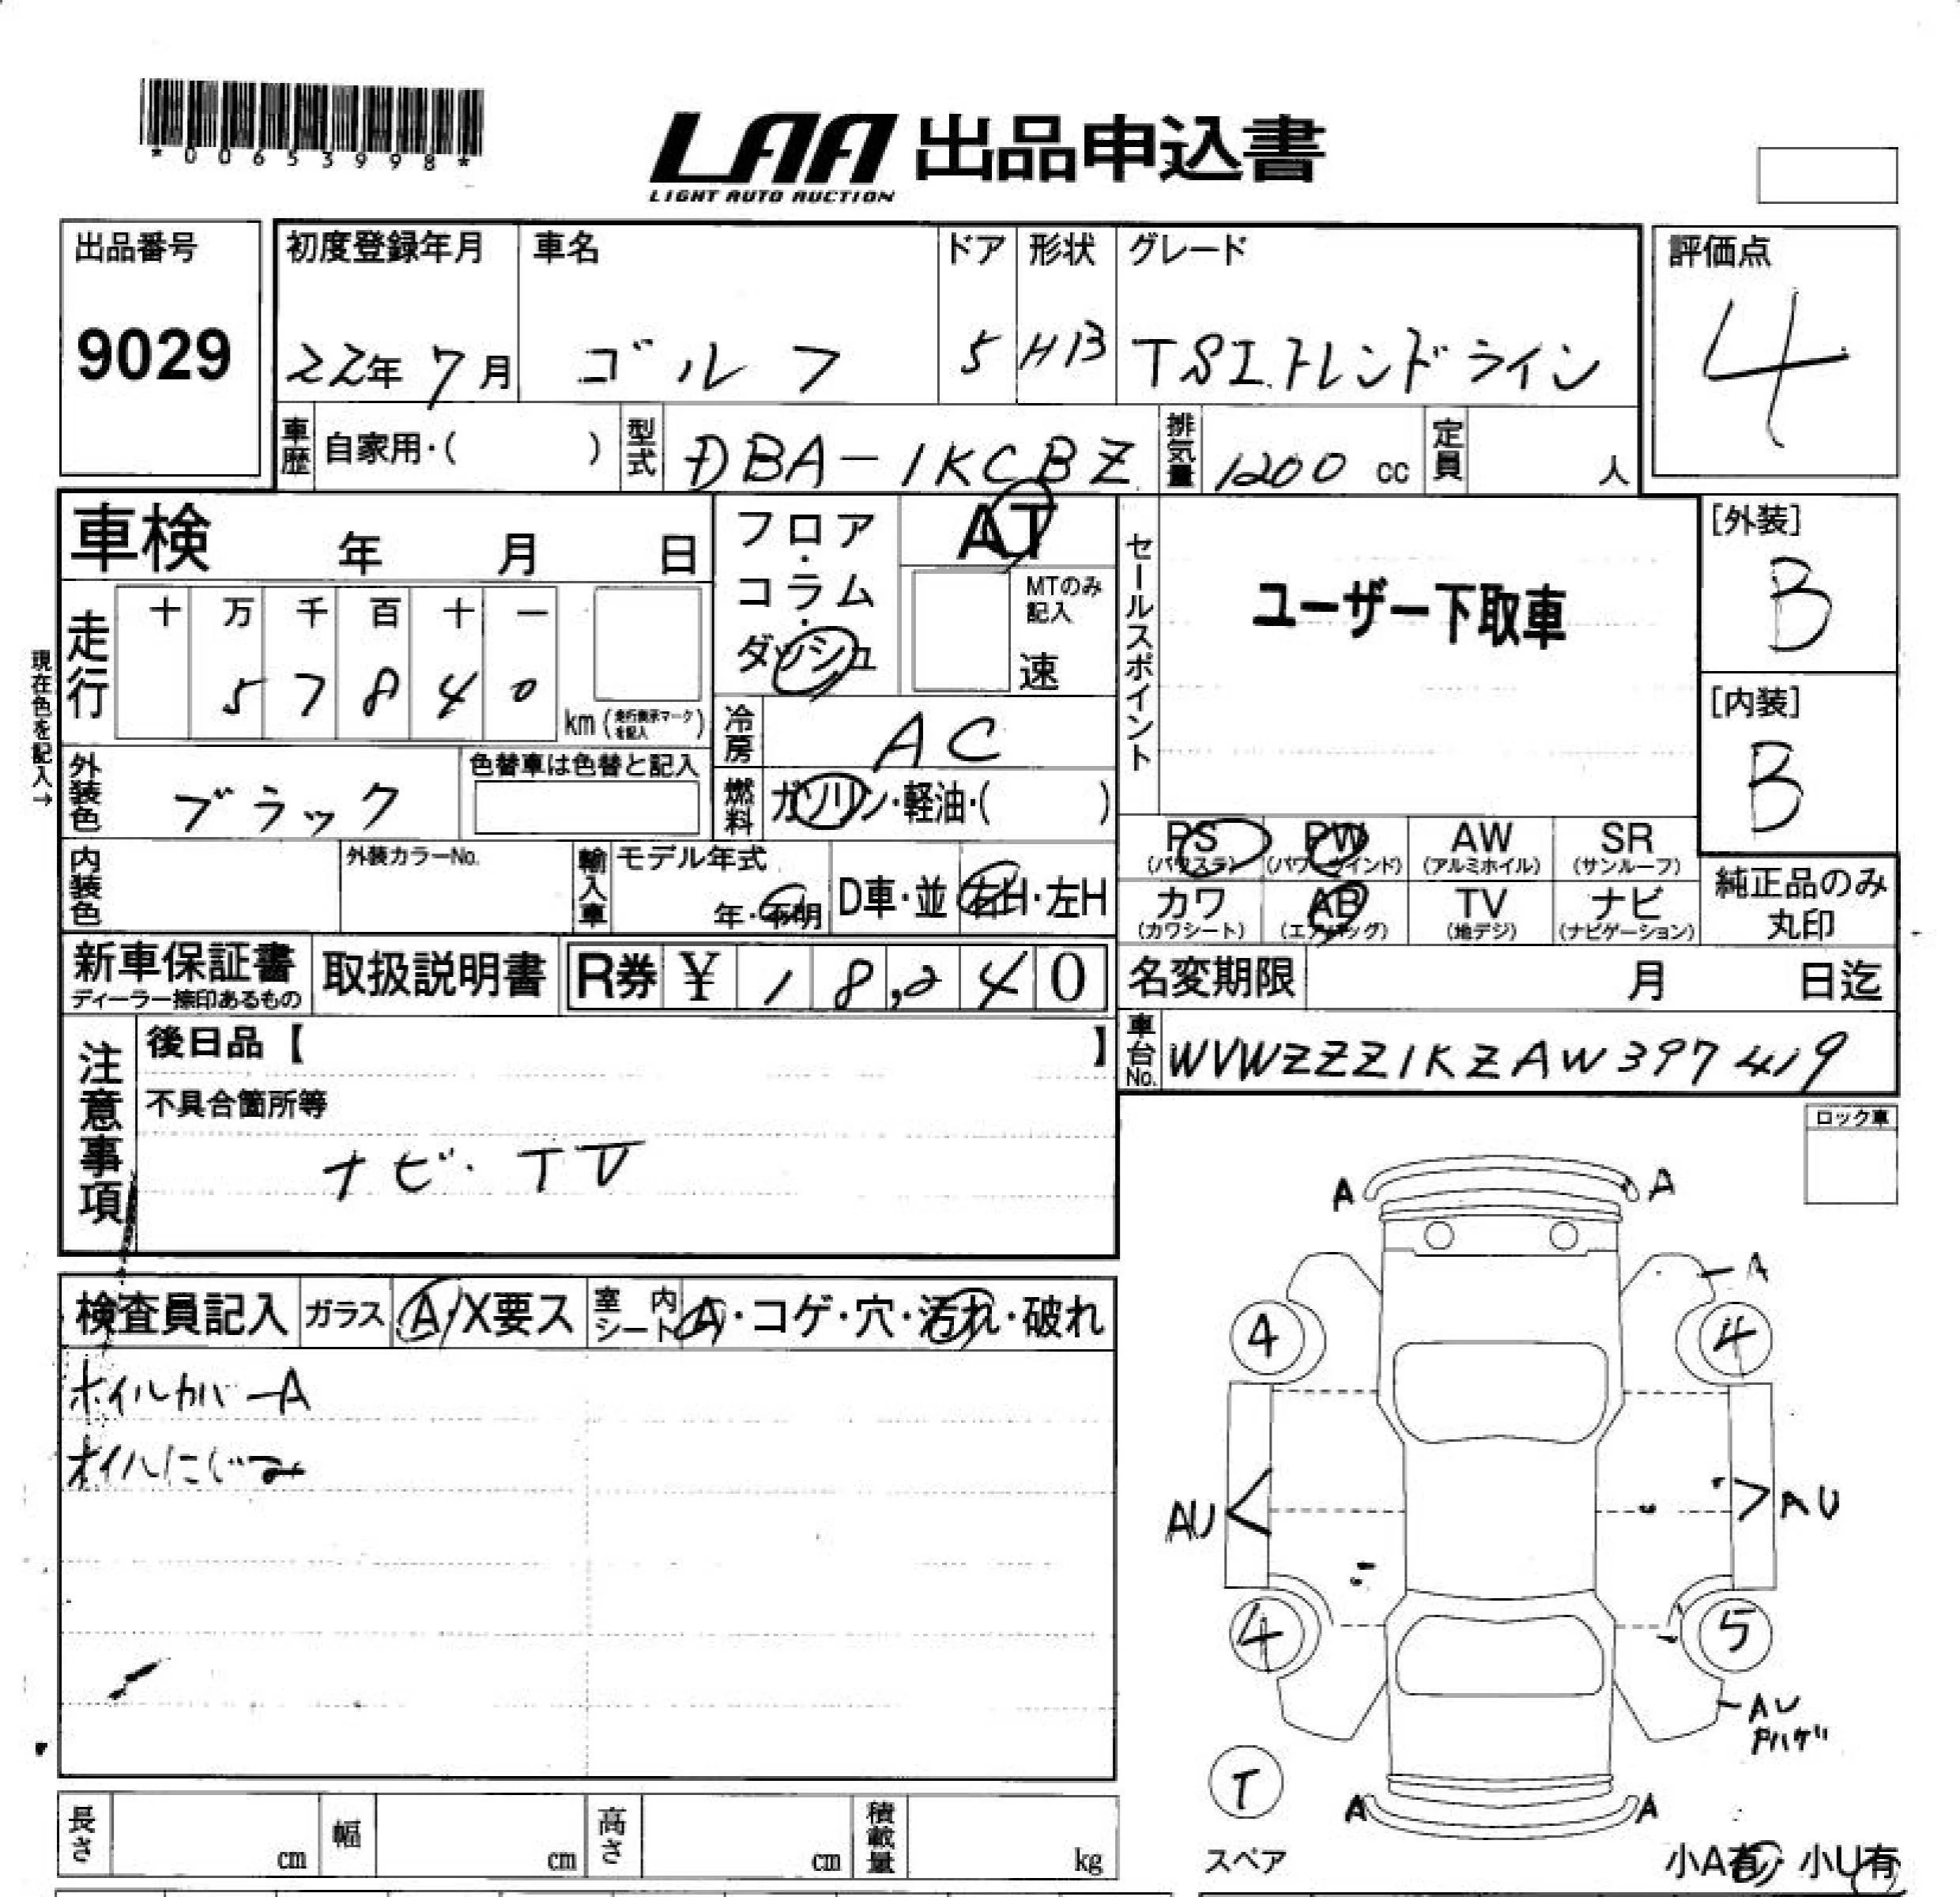 *00653998*
LAA 出品申込書
LIGHT AUTO AUCTION
出品番号 9029
初度登録年月 22年 7月
車名 ゴルフ
ドア 5
形状 HB
グレード TSI.トレンドライン
評価点 4
車歴 自家用・( )
型式 DBA-1KCBZ
排気量 1200 cc
定員 人
車検 年 月 日
フロア・コラム・ダッシュ
AT
MTのみ記入 速
セールスポイント
ユーザー下取車
[外装] B
[内装] B
現在色を記入→
走行 十 万 千 百 十 一
5 7 8 4 0
km (走行表示マークを記入)
冷房 AC
外装色 ブラック
色替車は色替と記入
燃料 ガソリン・軽油・( )
PS (パワステ)
PW (パワーウインド)
AW (アルミホイル)
SR (サンルーフ)
内装色
外装カラーNo.
輸入車 モデル年式 年・不明
D車・並
右H・左H
カワ (カワシート)
AB (エアバッグ)
TV (地デジ)
ナビ (ナビゲーション)
純正品のみ丸印
新車保証書 ディーラー捺印あるもの
取扱説明書
R券 ¥ 1 8,2 4 0
名変期限 月 日迄
車台No. WVWZZZ1KZAW397419
注意事項
後日品【 】
不具合箇所等
ナビ・TV
ロック車
検査員記入
ガラス A/X要ス
室内シート A・コゲ・穴・汚れ・破れ
ホイルカバーA
オイルにじみ
A A
A
4 4
AU AU
4 5
AU
T
スペア
A A
小A有・小U有
長さ cm
幅 cm
高さ cm
積載量 kg